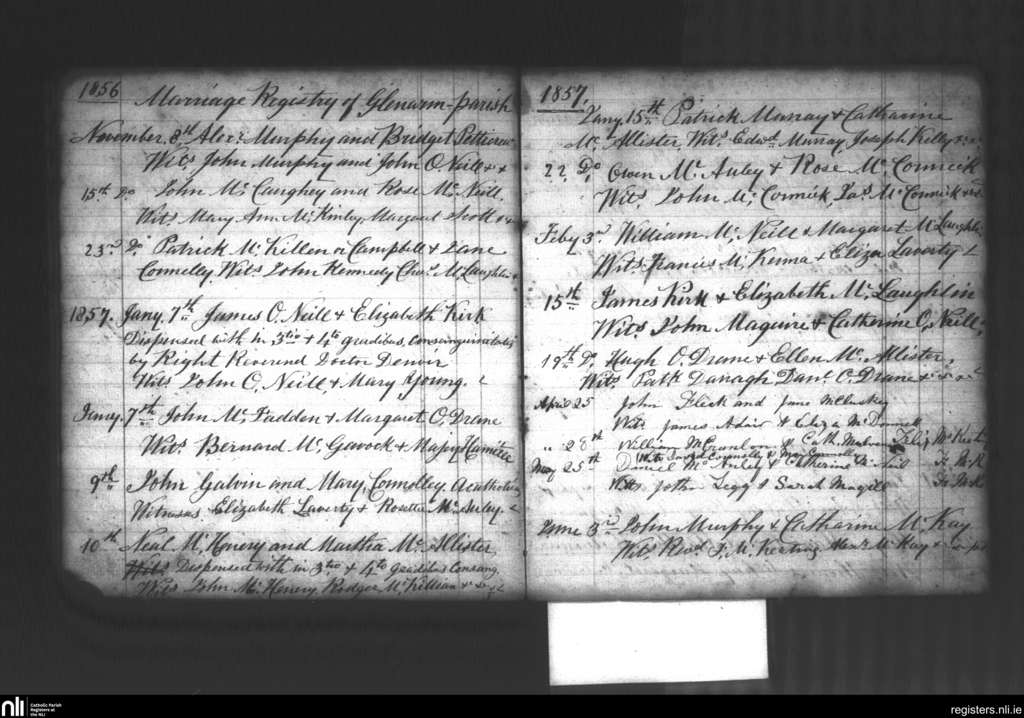 1856
Marriage Registry of Glenarm-parish
November 8th Alexr Murphy and Bridget
Wits John Murphy and John O,Neill &c &
15th Do John Mc Caughey and Rose Mc Neill
Wits Mary Ann Mc Kinley Margaret Scott &c
23rd Do Patrick Mc Killen or Campbell & Jane
Connelly, Wits John Kennedy Chas. Mc Laughlin &
1857. Jany. 7th James O,Neill & Elizabeth Kirk
Dispensed with in 3tio & 4to gradibus, consanguinitatis
by Right Reverend Doctor Denvir
Wits John O,Neill & Mary Young.
Jany. 7th John Mc Fadden & Margaret O,Drane
Wits. Bernard Mc Gavock & Major Hamilton
9th John Galvin and Mary Connolley
Witnesses Elizabeth Laverty & Rosetta Mc Auley
10th Neal Mc Henery and Martha Mc Allister
Wits Dispensed with in 3tio & 4to gradibus Consang.
Wits John Mc Henery, Rodger Mc Killian &c
1857.
Jany. 15th Patrick Murray & Catharine
Mc Allister, Wits. Edwd. Murray Joseph Kelly &c
22, Do, Owen Mc Auley & Rose Mc Cormick
Wits John Mc Cormick, Jas. Mc Cormick &c
Feby 3rd William Mc Neill & Margaret McLaughlin
Wits Francis Mc Kenna & Eliza Laverty
15th James Kirk & Elizabeth Mc Laughlin
Wits. John Maguire & Catherine O,Neill,
19th Do, Hugh O,Drane & Ellen Mc Allister,
Wits Patk Darragh Danl. O,Drane &c
April 25 John Fleck and Jane McCluskey
Wits James Adair & Eliza McDonnell
" 28th William & Cath.
Wits Sarah Connolly & Mary Connolly
May 25th Daniel Mc Auley & Catherine Mc Neil F. McK
Wits John Legg & Sarah Magill
June 3rd John Murphy & Catharine Mc Kay
Wits Revd F. Mc Keating Mc Kay &
nli
Catholic Parish
Registers at
the NLI
registers.nli.ie